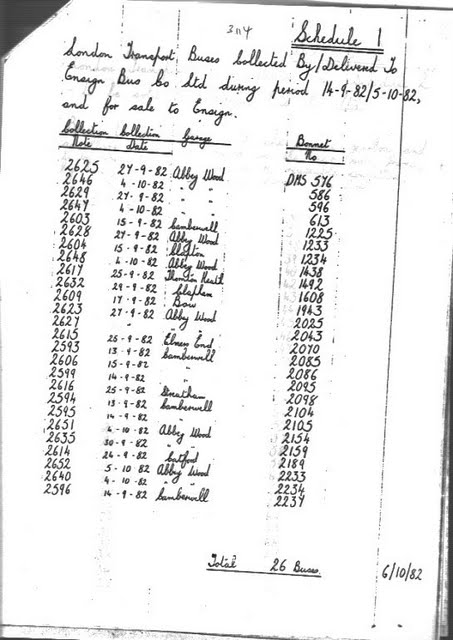 3114
Schedule 1
London Transport Buses Collected By/Delivered To
Ensign Bus Co Ltd during period 14-9-82/5-10-82,
and for sale to Ensign.
Collection Note Collection Date Garage Bonnet No
2625 27-9-82 Abby Wood DMS 576
2646 4-10-82 " " 586
2629 27-9-82 " " 596
2647 4-10-82 " " 613
2603 15-9-82 Camberwell 1225
2628 27-9-82 Abby Wood 1233
2604 15-9-82 Clapton 1234
2648 4-10-82 Abby Wood 1438
2617 25-9-82 Thornton Heath 1492
2632 29-9-82 Clapham 1608
2609 17-9-82 Bow 1943
2623 27-9-82 Abby Wood 2025
2627 " " 2043
2615 25-9-82 Elmers End 2070
2593 13-9-82 Camberwell 2085
2606 15-9-82 " 2086
2599 14-9-82 " 2095
2616 25-9-82 Streatham 2098
2594 13-9-82 Camberwell 2104
2595 14-9-82 " 2105
2651 4-10-82 Abby Wood 2154
2635 30-9-82 " " 2159
2614 24-9-82 Catford 2189
2652 5-10-82 Abby Wood 2233
2640 4-10-82 " " 2234
2596 14-9-82 Camberwell 2237
Total 26 Buses.
6/10/82